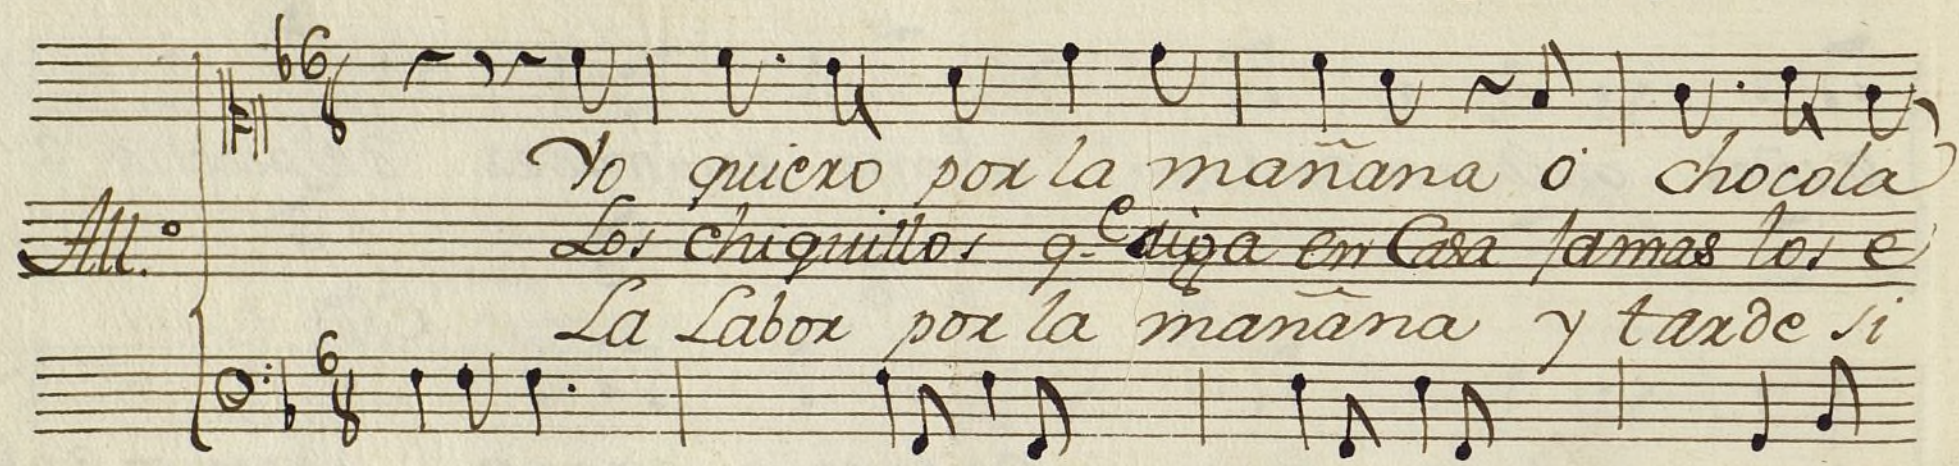 Yo quiero por la mañana ó chocola
All.º
Los chiquillos q.e aiga en Casa jamas los e
La Labor por la mañana y tarde si